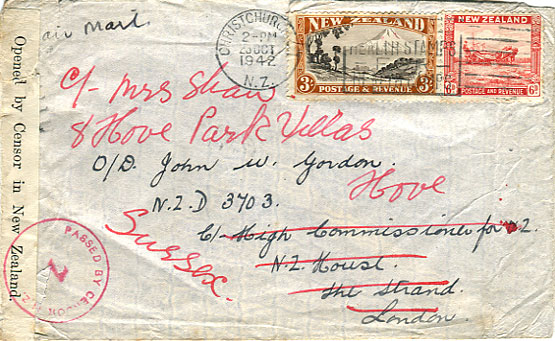 air mail.
Opened by Censor in New Zealand.
CHRISTCHURCH
2-PM
1942
N.Z.
NEW ZEALAND
3D
POSTAGE & REVENUE
NEW ZEALAND
6D
POSTAGE AND REVENUE
c/- Mrs Shaw
8 Hove Park Villas
O/D. John W. Gordon.
Hove
N.Z.D 3703.
Sussex.
C/- High Commissioner for N.Z.
N.Z. House.
The Strand.
London.
PASSED BY
2